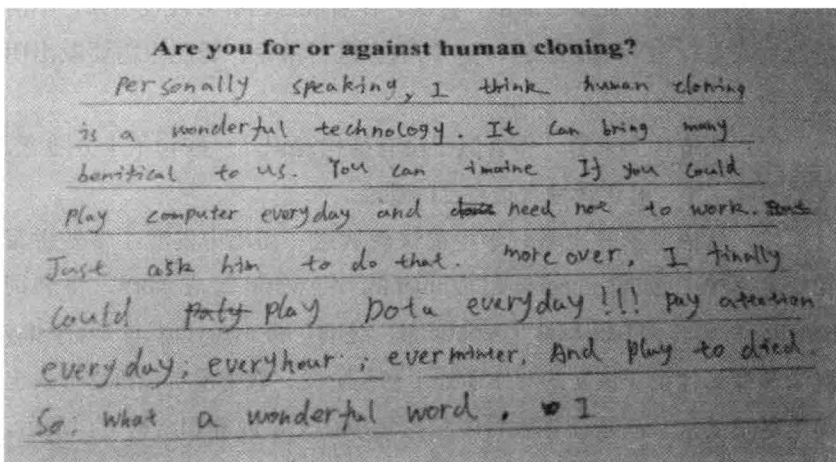 Are you for or against human cloning?
Personally speaking, I think human cloning
is a wonderful technology. It can bring many
benitical to us. You can imaine If you could
play computer everyday and need not to work.
Just ask him to do that. more over, I finally
could paty play Dota everyday!!! pay attention
every day; everyhour; everminter, And play to died.
So; what a wonderful word. I